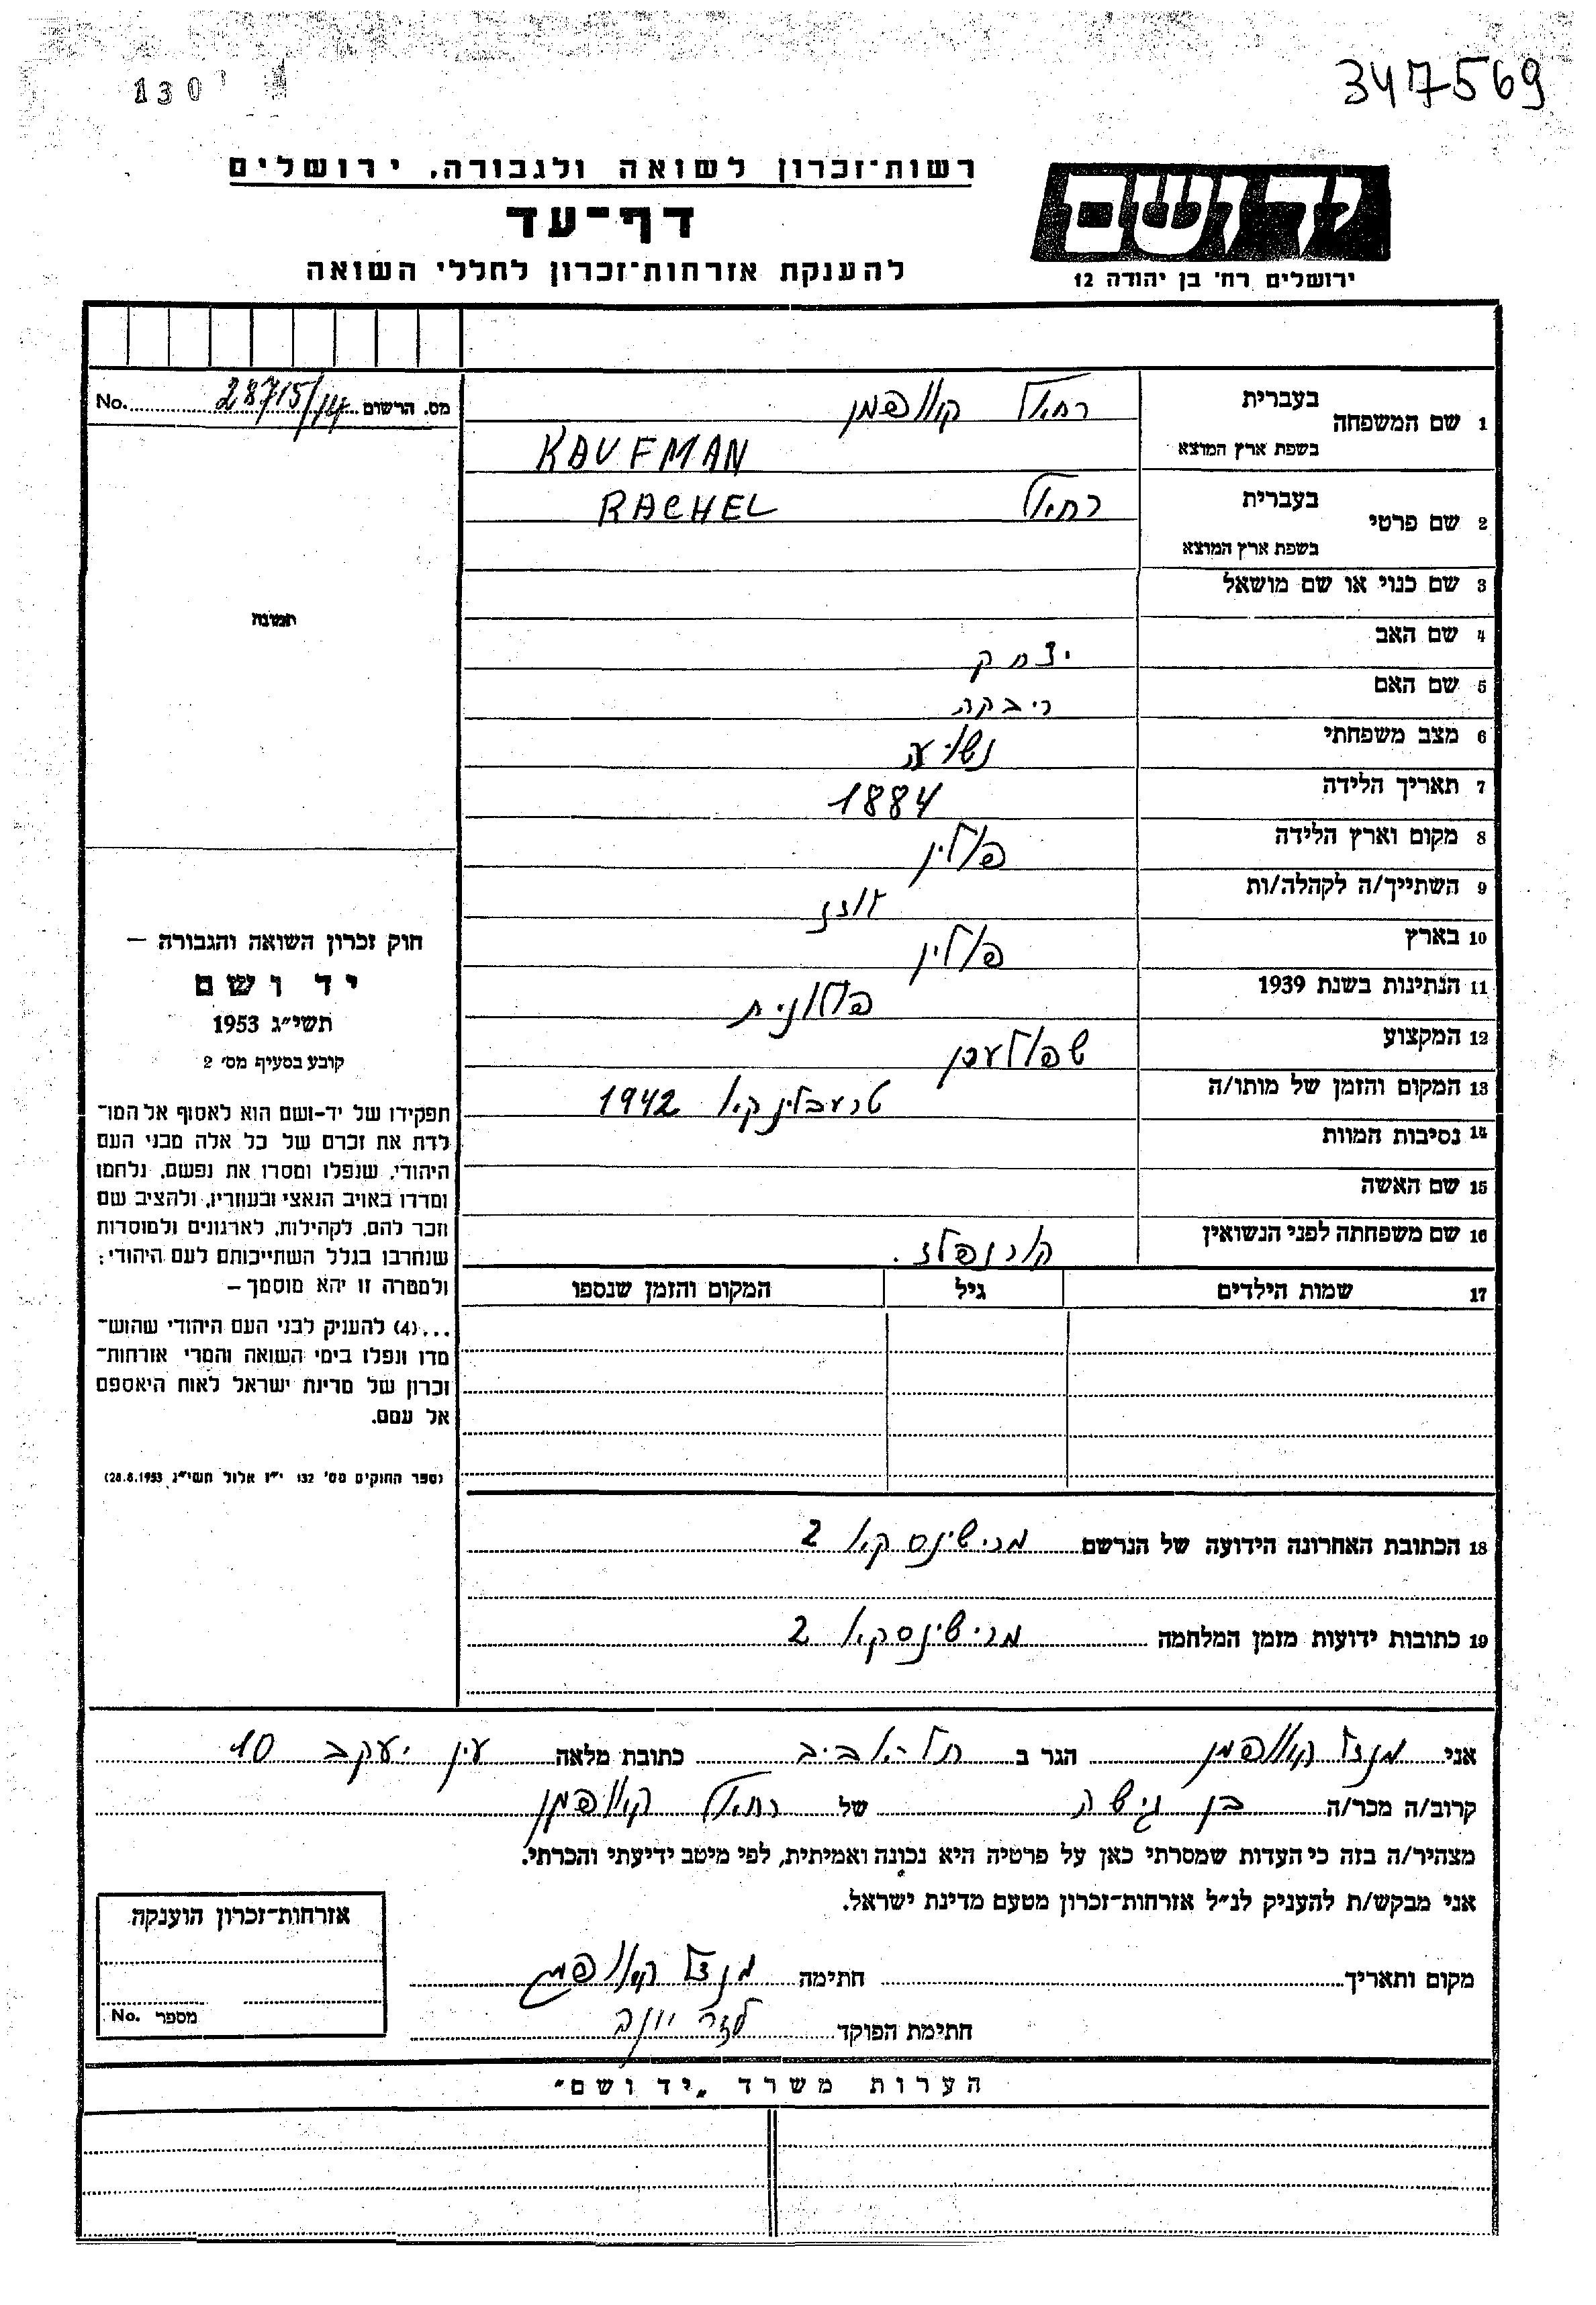 130
347569
רשות־זכרון לשואה ולגבורה, ירושלים
דף־עד
להענקת אזרחות־זכרון לחללי השואה
יד ושם
ירושלים רח' בן יהודה 12
מס. הרשום 28715/14 No.
1 שם המשפחה
בעברית רחל קויפמן
בשפת ארץ המוצא KAUFMAN
2 שם פרטי
בעברית רחל RACHEL
בשפת ארץ המוצא
3 שם כנוי או שם מושאל
4 שם האב יצחק
5 שם האם ריבקה
6 מצב משפחתי נשואה
7 תאריך הלידה 1884
8 מקום וארץ הלידה פולין
9 השתייך/ה לקהלה/ות
10 בארץ פולין
11 הנתינות בשנת 1939 פולנית
12 המקצוע
13 המקום והזמן של מותו/ה טרעבלינקא 1942
14 נסיבות המוות
15 שם האשה
16 שם משפחתה לפני הנשואין
17 שמות הילדים גיל המקום והזמן שנספו
תמונה
חוק זכרון השואה והגבורה —
יד ושם
תשי״ג 1953
קובע בסעיף מס׳ 2
תפקידו של יד-ושם הוא לאסוף אל המו־
לדת את זכרם של כל אלה מבני העם
היהודי, שנפלו ומסרו את נפשם, נלחמו
ומרדו באויב הנאצי ובעוזריו, ולהציב שם
וזכר להם, לקהילות, לארגונים ולמוסדות
שנחרבו בגלל השתייכותם לעם היהודי;
ולמטרה זו יהא מוסמך —
...(4) להעניק לבני העם היהודי שהוש־
מדו ונפלו בימי השואה והמרי אזרחות־
זכרון של מדינת ישראל לאות היאספם
אל עמם.
(ספר החוקים מס׳ 132 י״ז אלול תשי״ג 28.8.1953)
18 הכתובת האחרונה הידועה של הנרשם 2
19 כתובות ידועות מזמן המלחמה 2
אני מנדל קויפמן הגר ב תל-אביב כתובת מלאה עין יעקב 10
קרוב/ה מכר/ה בן גיסה של רחל קויפמן
מצהיר/ה בזה כי העדות שמסרתי כאן על פרטיה היא נכונה ואמיתית, לפי מיטב ידיעתי והכרתי.
אני מבקש/ת להעניק לנ״ל אזרחות־זכרון מטעם מדינת ישראל.
מקום ותאריך חתימה מנדל קויפמן
חתימת הפוקד
אזרחות־זכרון הוענקה
מספר No.
הערות משרד „יד ושם״